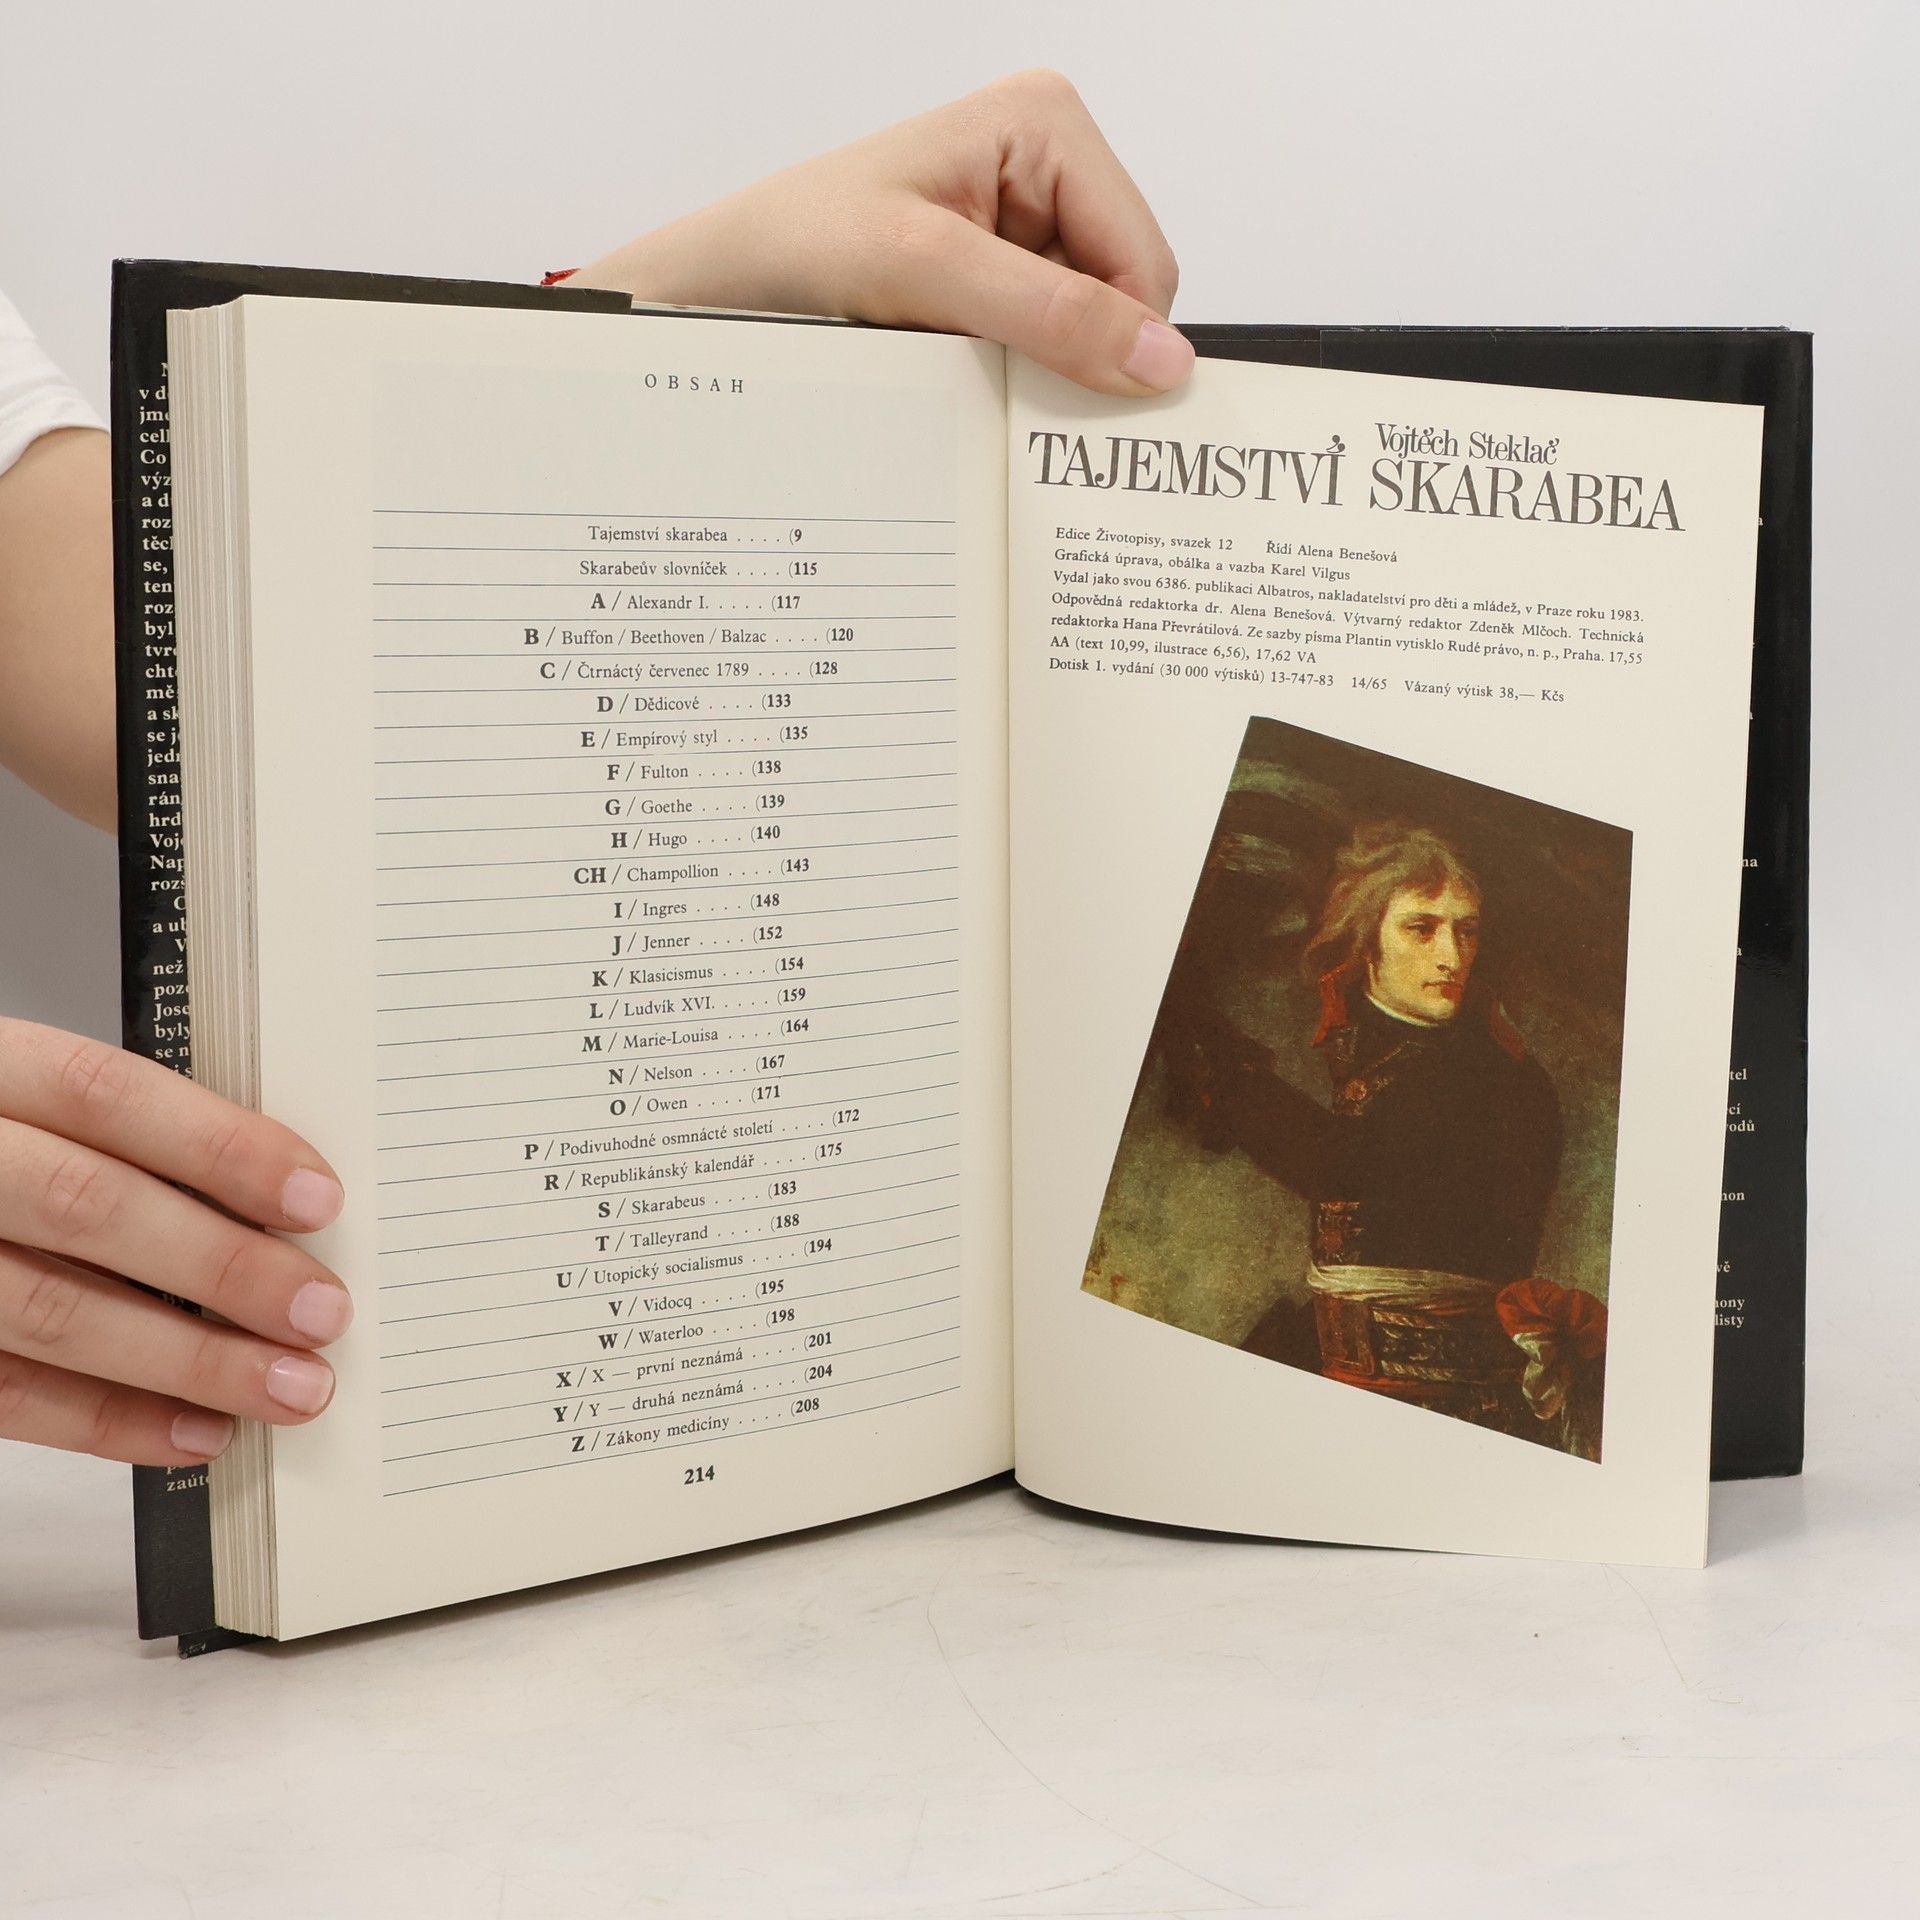 v d
jm
cel
Co
výz
a d
roz
těc
se,
ten
roz
byl
tvr
cht
mě
a sk
se j
jed
sna
rán
hrd
Voj
Nap
roz
a ub
než
poz
Jose
byly
se n
i s
zaút
OBSAH
Tajemství skarabea . . . . (9
Skarabeův slovníček . . . . (115
A / Alexandr I. . . . . (117
B / Buffon / Beethoven / Balzac . . . . (120
C / Čtrnáctý červenec 1789 . . . . (128
D / Dědicové . . . . (133
E / Empírový styl . . . . (135
F / Fulton . . . . (138
G / Goethe . . . . (139
H / Hugo . . . . (140
CH / Champollion . . . . (143
I / Ingres . . . . (148
J / Jenner . . . . (152
K / Klasicismus . . . . (154
L / Ludvík XVI. . . . . (159
M / Marie-Louisa . . . . (164
N / Nelson . . . . (167
O / Owen . . . . (171
P / Podivuhodné osmnácté století . . . . (172
R / Republikánský kalendář . . . . (175
S / Skarabeus . . . . (183
T / Talleyrand . . . . (188
U / Utopický socialismus . . . . (194
V / Vidocq . . . . (195
W / Waterloo . . . . (198
X / X — první neznámá . . . . (201
Y / Y — druhá neznámá . . . . (204
Z / Zákony medicíny . . . . (208
214
Vojtěch Steklač
TAJEMSTVÍ SKARABEA
Edice Životopisy, svazek 12 Řídí Alena Benešová
Grafická úprava, obálka a vazba Karel Vilgus
Vydal jako svou 6386. publikaci Albatros, nakladatelství pro děti a mládež, v Praze roku 1983.
Odpovědná redaktorka dr. Alena Benešová. Výtvarný redaktor Zdeněk Mlčoch. Technická
redaktorka Hana Převrátilová. Ze sazby písma Plantin vytisklo Rudé právo, n. p., Praha. 17,55
AA (text 10,99, ilustrace 6,56), 17,62 VA
Dotisk 1. vydání (30 000 výtisků) 13-747-83 14/65 Vázaný výtisk 38,— Kčs
na
a
tel
cí
rodů
non
vě
ony
listy